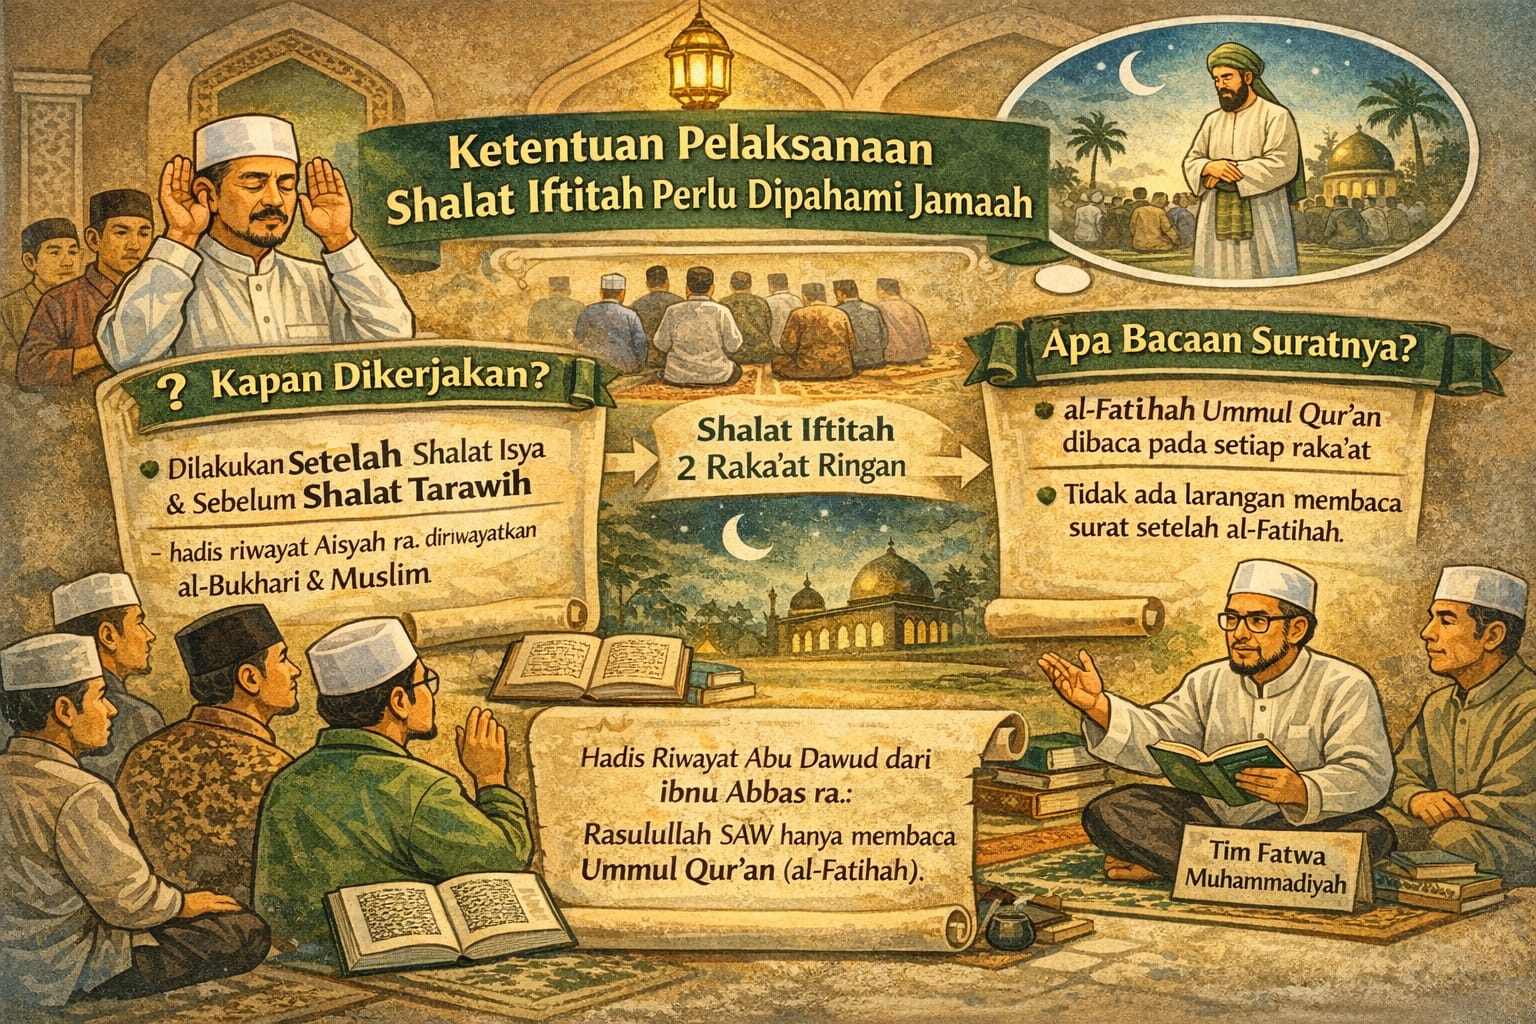 Ketentuan Pelaksanaan
Shalat Iftitah Perlu Dipahami Jamaah
? Kapan Dikerjakan?
Dilakukan Setelah Shalat Isya
& Sebelum Shalat Tarawih
- hadis riwayat Aisyah ra. diriwayatkan
al-Bukhari & Muslim
Shalat Iftitah
2 Raka'at Ringan
Apa Bacaan Suratnya?
al-Fatihah Ummul Qur'an
dibaca pada setiap raka'at
Tidak ada larangan membaca
surat setelah al-Fatihah.
Hadis Riwayat Abu Dawud dari
ibnu Abbas ra.:
Rasulullah SAW hanya membaca
Ummul Qur'an (al-Fatihah).
Tim Fatwa
Muhammadiyah